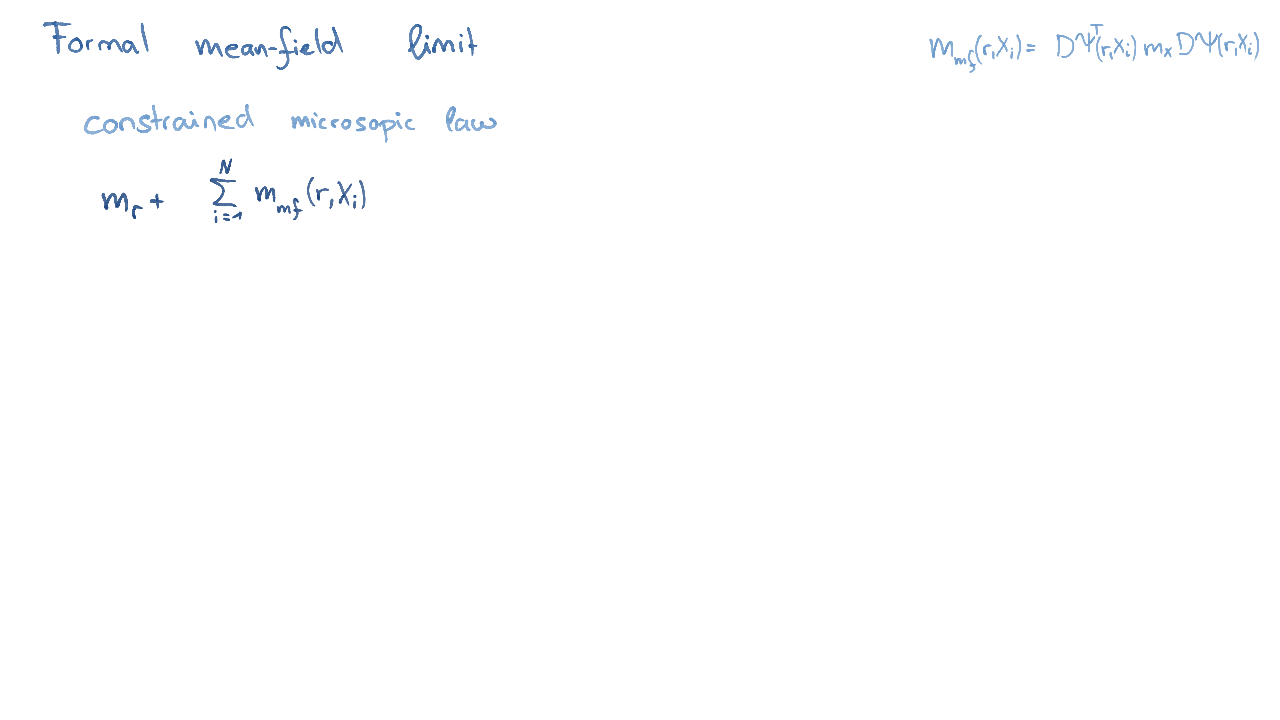 Formal mean-field limit
m_mf(r,X_i) = DΨ^T(r,X_i) m_x DΨ(r,X_i)
constrained microsopic law
m_r + ∑_{i=1}^{N} m_mf(r,X_i)